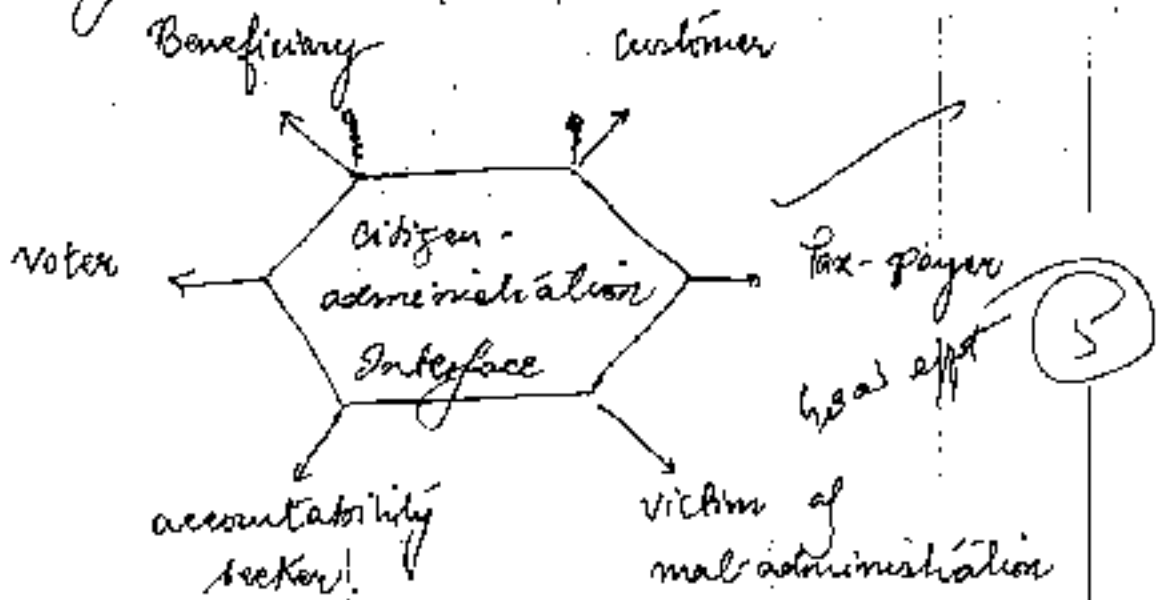 Beneficiary
Customer
Voter
Citizen -
administration
Interface
Tax-payer
5
accountability
seeker!
victim of
mal-administration